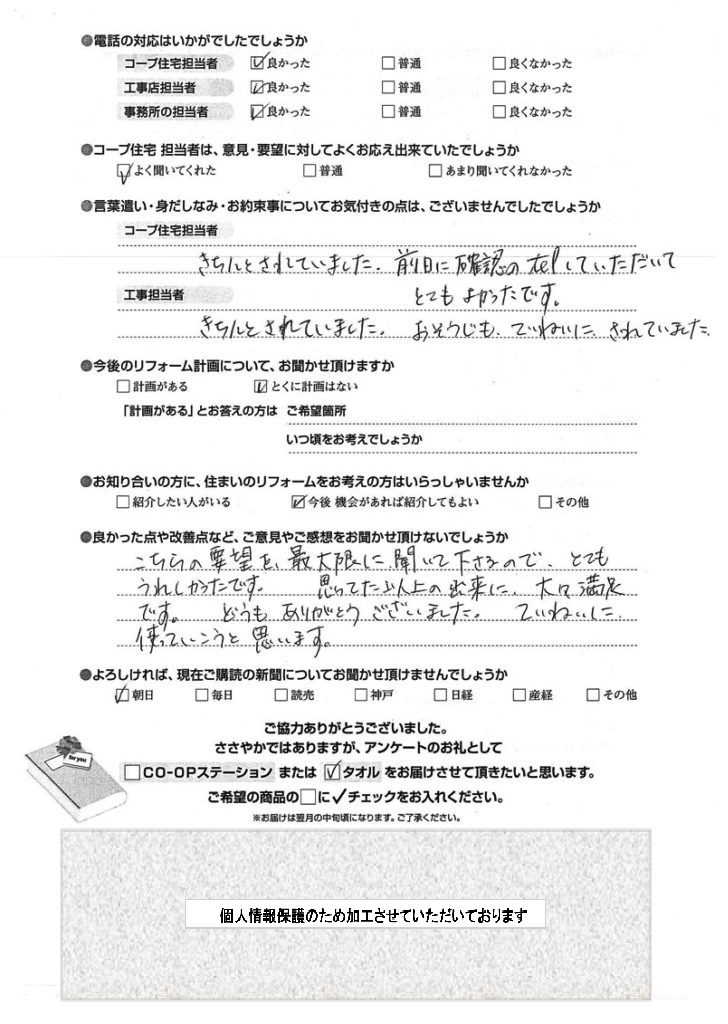 ●電話の対応はいかがでしたでしょうか
コープ住宅担当者 ☑良かった □普通 □良くなかった
工事店担当者 ☑良かった □普通 □良くなかった
事務所の担当者 ☑良かった □普通 □良くなかった
●コープ住宅 担当者は、意見・要望に対してよくお応え出来ていたでしょうか
☑よく聞いてくれた □普通 □あまり聞いてくれなかった
●言葉遣い・身だしなみ・お約束事についてお気付きの点は、ございませんでしたでしょうか
コープ住宅担当者
きちんとされていました。前日に確認のtelしていただいて
とてもよかったです。
工事担当者
きちんとされていました。おそうじも、ていねいに、されていました。
●今後のリフォーム計画について、お聞かせ頂けますか
□計画がある ☑とくに計画はない
「計画がある」とお答えの方は ご希望箇所
いつ頃をお考えでしょうか
●お知り合いの方に、住まいのリフォームをお考えの方はいらっしゃいませんか
□紹介したい人がいる ☑今後 機会があれば紹介してもよい □その他
●良かった点や改善点など、ご意見やご感想をお聞かせ頂けないでしょうか
こちらの要望を、最大限に聞いて下さるので、とても
うれしかったです。 思ってた以上の出来に、大々満足
です。 どうもありがとうございました。 ていねいに、
使っていこうと思います。
●よろしければ、現在ご購読の新聞についてお聞かせ頂けませんでしょうか
☑朝日 □毎日 □読売 □神戸 □日経 □産経 □その他
ご協力ありがとうございました。
ささやかではありますが、アンケートのお礼として
for you
□CO-OPステーション または ☑タオル をお届けさせて頂きたいと思います。
ご希望の商品の□に✓チェックをお入れください。
※お届けは翌月の中旬頃になります。ご了承ください。
個人情報保護のため加工させていただいております